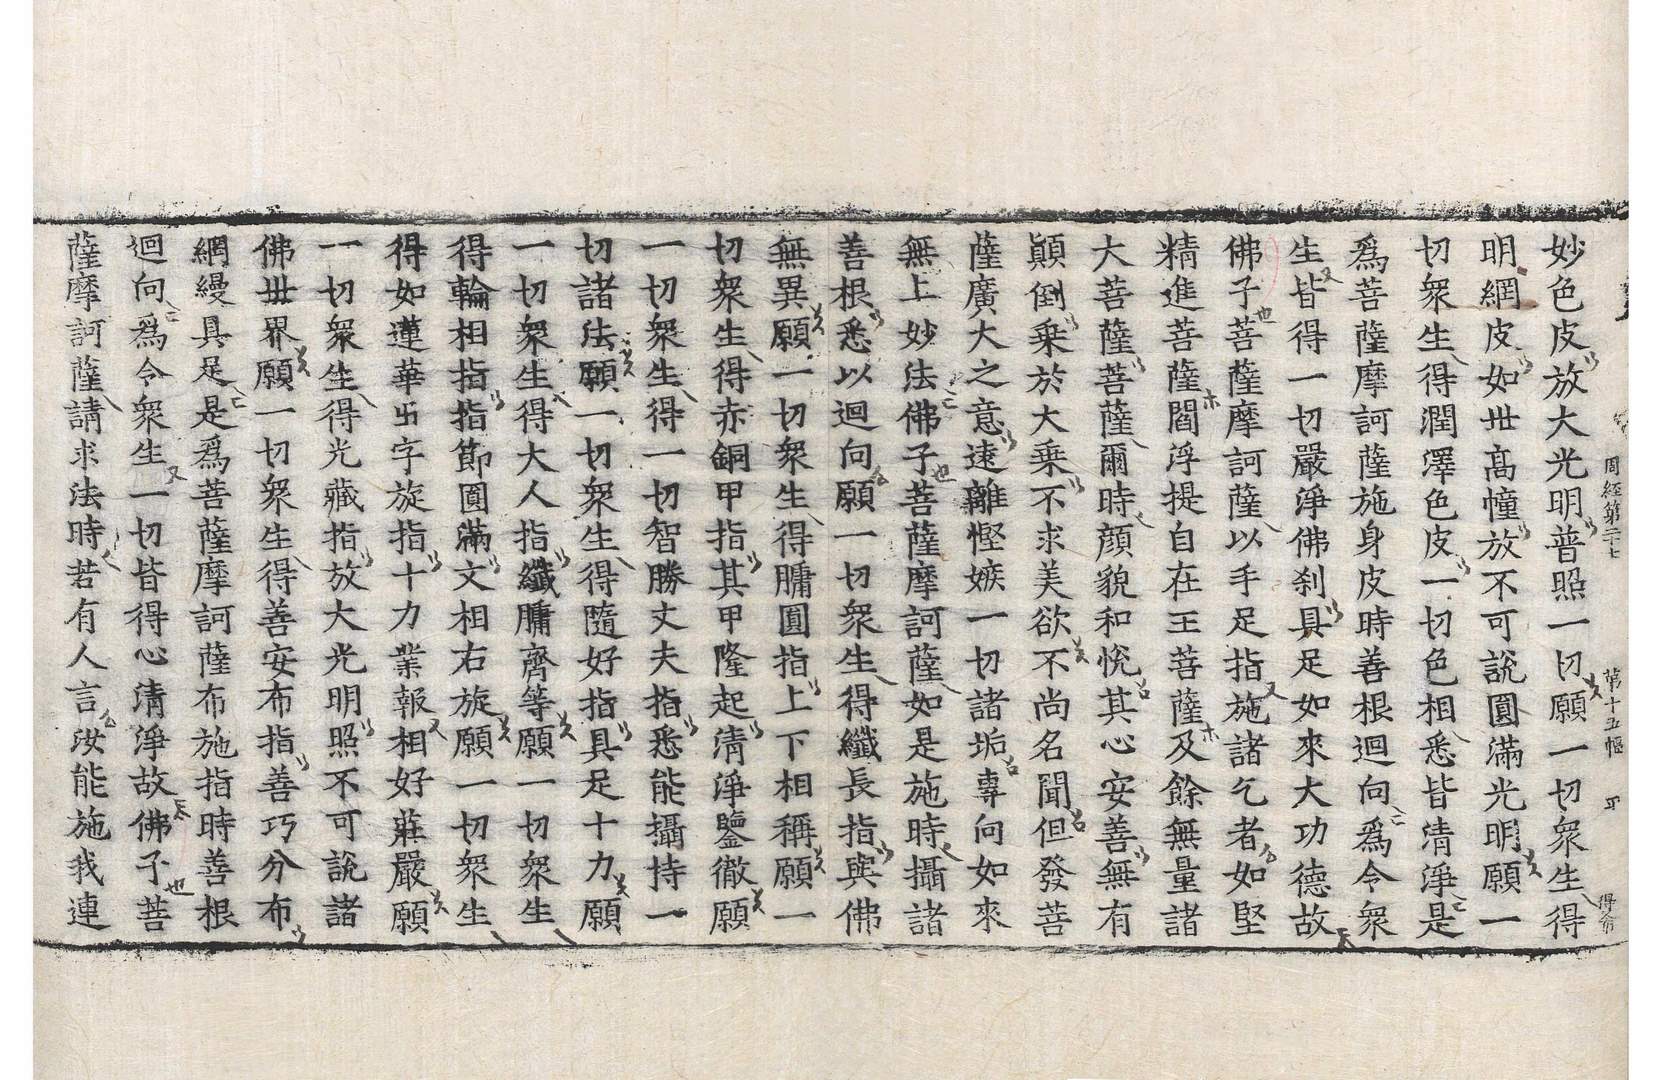 周經第二十七 第十五幅 平 得希
妙色皮放大光明普照一切願一切衆生得
明網皮如丗高幢放不可說圓滿光明願一
切衆生得潤澤色皮一切色相悉皆清淨是
爲菩薩摩訶薩施身皮時善根迴向爲令衆
生皆得一切嚴淨佛刹具足如來大功德故
佛子菩薩摩訶薩以手足指施諸乞者如堅
精進菩薩閻浮提自在王菩薩及餘無量諸
大菩薩菩薩爾時顔貌和悅其心安善無有
顚倒乗於大乗不求美欲不尚名聞但發菩
薩廣大之意遠離慳嫉一切諸垢專向如來
無上妙法佛子菩薩摩訶薩如是施時攝諸
善根悉以迴向願一切衆生得纖長指與佛
無異願一切衆生得𦟛圓指上下相稱願一
切衆生得赤銅甲指其甲隆起清淨鑒徹願
一切衆生得一切智勝丈夫指悉能攝持一
切諸法願一切衆生得隨好指具足十力願
一切衆生得大人指纖𦟛齊等願一切衆生
得輪相指指節圓滿文相右旋願一切衆生
得如蓮華卐字旋指十力業報相好莊嚴願
一切衆生得光藏指放大光明照不可說諸
佛丗界願一切衆生得善安布指善巧分布
網縵具足是爲菩薩摩訶薩布施指時善根
迴向爲令衆生一切皆得心清淨故佛子菩
薩摩訶薩請求法時若有人言汝能施我連